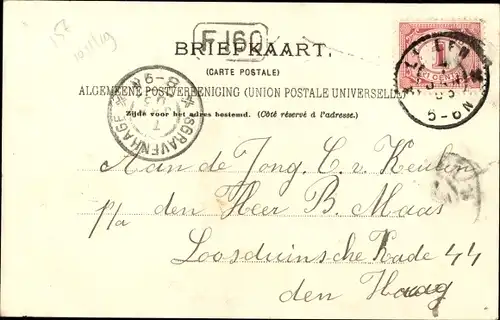 F160
BRIEFKAART.
(CARTE POSTALE)
ALGEMEENE POSTVEREENIGING (UNION POSTALE UNIVERSELLE)
Zijde voor het adres bestemd. (Côté réservé à l'adresse.)
'SGRAVENHAGE
8-9N
1
CENT
5-6N
Aan de Jong. C. v. Keulen
p/a den Heer B. Maas
Loosduinsche Kade 44
den Haag